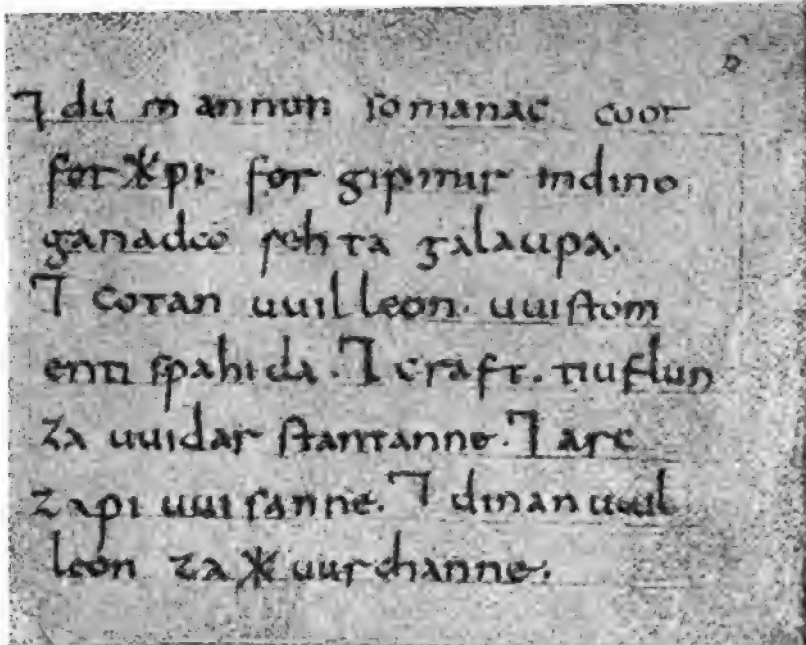 ⁊ du m annun somanac coot
forᚼpi for gipmir indino
ganada rehta galaupa.
⁊ cotan uuilleon. uuistom
enti spahida. ⁊ craft. tiuflun
za uuidar stantanne. ⁊ arc
zapi uuisanne. ⁊ dinan uuil
leon zaᚼuurchanne.